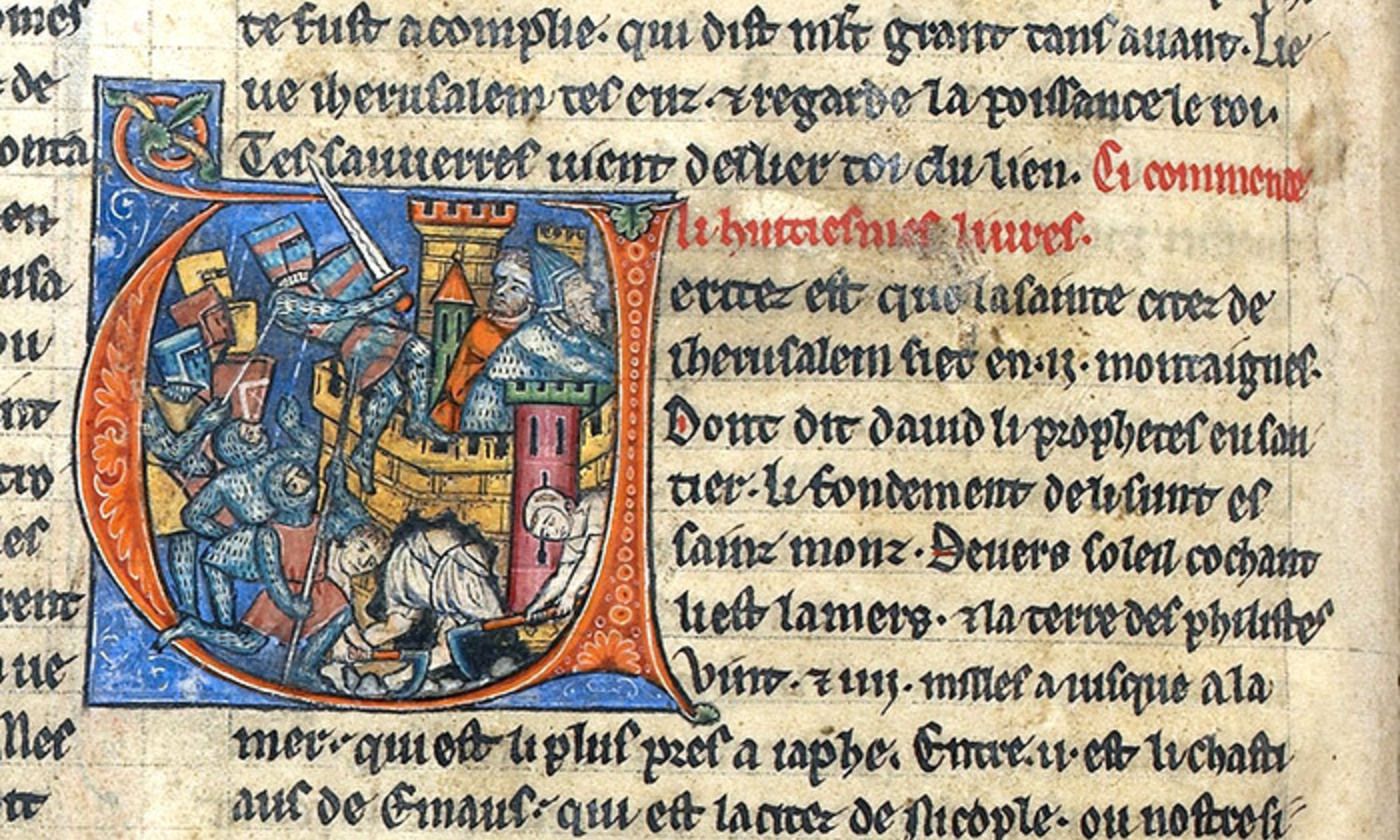 te fust acomplie. qui dist mlt grant tans auant. Lie
ue iherusalem tes euz. ⁊ regarde la poissance le roi.
Tes sauuerres uient deslier toi du lien. Ci commence
li huitiesmes liures.
Veritez est que la sainte citez de
iherusalem siet en .ii. montaignes.
Dont dit dauid li prophetes en sau
tier. li fondement de li sunt es
sainz monz. Deuers soleil cochant
li est la mers. ⁊ la terre des philistes
Vint. ⁊ iiij. milles a iusque a la
mer. qui est li plus pres a iaphe. Entre .ii. est li chasti
aus de Emaus. qui est la citez de Nicople. ou nostre si